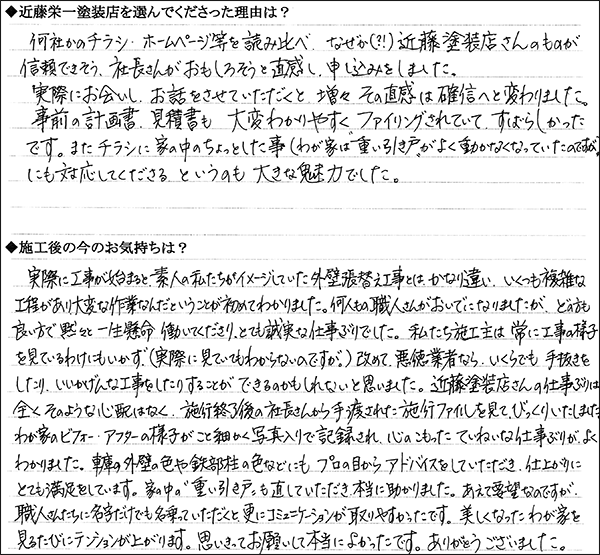 ◆近藤栄一塗装店を選んでくださった理由は？
何社かのチラシ・ホームページ等を読み比べ、なぜか(?!)近藤塗装店さんのものが
信頼できそう、社長さんがおもしろそうと直感し、申し込みをしました。
実際にお会いし、お話をさせていただくと、増々その直感は確信へと変わりました。
事前の計画書、見積書も大変わかりやすくファイリングされていて、すばらしかった
です。またチラシに家の中のちょっとした事(わが家は"重い引き戸"がよく動かなくなっていたのですが)
にも対応してくださるというのも大きな魅力でした。
◆施工後の今のお気持ちは？
実際に工事が始まると、素人の私たちがイメージしていた外壁張替え工事とは、かなり違い、いくつも複雑な
工程があり大変な作業なんだということが初めてわかりました。何人もの職人さんがおいでになりましたが、どの方も
良い方で黙々と一生懸命働いてくださり、とても誠実な仕事ぶりでした。私たち施工主は常に工事の様子
を見ているわけにもいかず(実際に見ていてもわからないのですが、)改めて、悪徳業者なら、いくらでも手抜きを
したり、いいかげんな工事をしたりすることができるのかもしれないと思いました。近藤塗装店さんの仕事ぶりは
全くそのような心配はなく、施行終了後の社長さんから手渡された施行ファイルを見て、びっくりいたしました
わが家のビフォー・アフターの様子がこと細かく写真入りで記録され、心のこもったていねいな仕事ぶりが、よく
わかりました。車庫の外壁の色や鉄部柱の色などにもプロの目からアドバイスをしていただき、仕上がりに
とても満足をしています。家の中の"重い引き戸"も直していただき、本当に助かりました。あえて要望なのですが、
職人さんたちに名字だけでも名乗っていただくと更にコミュニケーションが取りやすかったです。美しくなったわが家を
見るたびにテンションが上がります。思いきってお願いして本当によかったです。ありがとうございました。